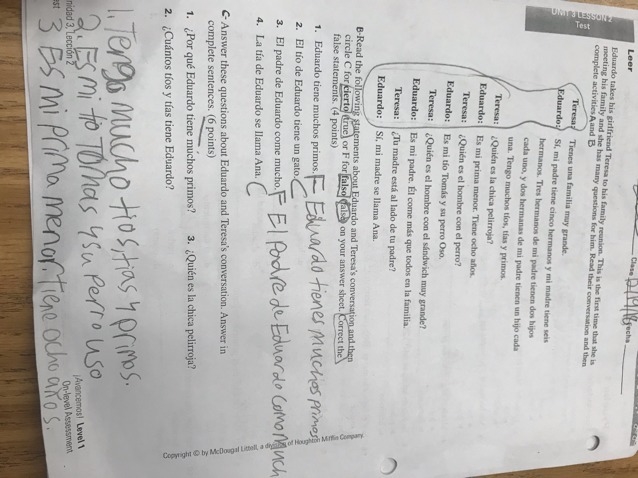 UNIT 3 LESSON 2
Test
Clase
Fecha
Leer
Eduardo takes his girlfriend Teresa to his family reunion. This is the first time that she is
meeting his family and she has many questions for him. Read their conversation and then
complete activities A and B.
Teresa: Tienes una familia muy grande.
Eduardo: Sí, mi padre tiene cinco hermanos y mi madre tiene seis
hermanos. Tres hermanos de mi padre tienen dos hijos
cada uno, y dos hermanas de mi padre tienen un hijo cada
una. Tengo muchos tíos, tías y primos.
Teresa: ¿Quién es la chica pelirroja?
Eduardo: Es mi prima menor. Tiene ocho años.
Teresa: ¿Quién es el hombre con el perro?
Eduardo: Es mi tío Tomás y su perro Oso.
Teresa: ¿Quién es el hombre con el sándwich muy grande?
Eduardo: Es mi padre. Él come más que todos en la familia.
Teresa: ¿Tu madre está al lado de tu padre?
Eduardo: Sí, mi madre se llama Ana.
B-Read the following statements about Eduardo and Teresa's conversation and then
circle C for cierto (true) or F for falso (false) on your answer sheet. Correct the
false statements. (4 points)
1. Eduardo tiene muchos primos. F Eduardo tiener muchos primos
2. El tío de Eduardo tiene un gato. C
3. El padre de Eduardo come mucho. F El padre de Eduardo como much
4. La tía de Eduardo se llama Ana. C
C-Answer these questions about Eduardo and Teresa's conversation. Answer in
complete sentences. (6 points)
1. ¿Por qué Eduardo tiene muchos primos?
2. ¿Cuántos tíos y tías tiene Eduardo?
3. ¿Quién es la chica pelirroja?
1. Tengo mucho tios, tias y primos.
2 Es mi tío Tomas y su perro uso
3 Es mi prima menor. Tiene ocho años.
Unidad 3, Lección 2
¡Avancemos! Level 1
On-level Assessment
Copyright © by McDougal Littell, a division of Houghton Mifflin Company.